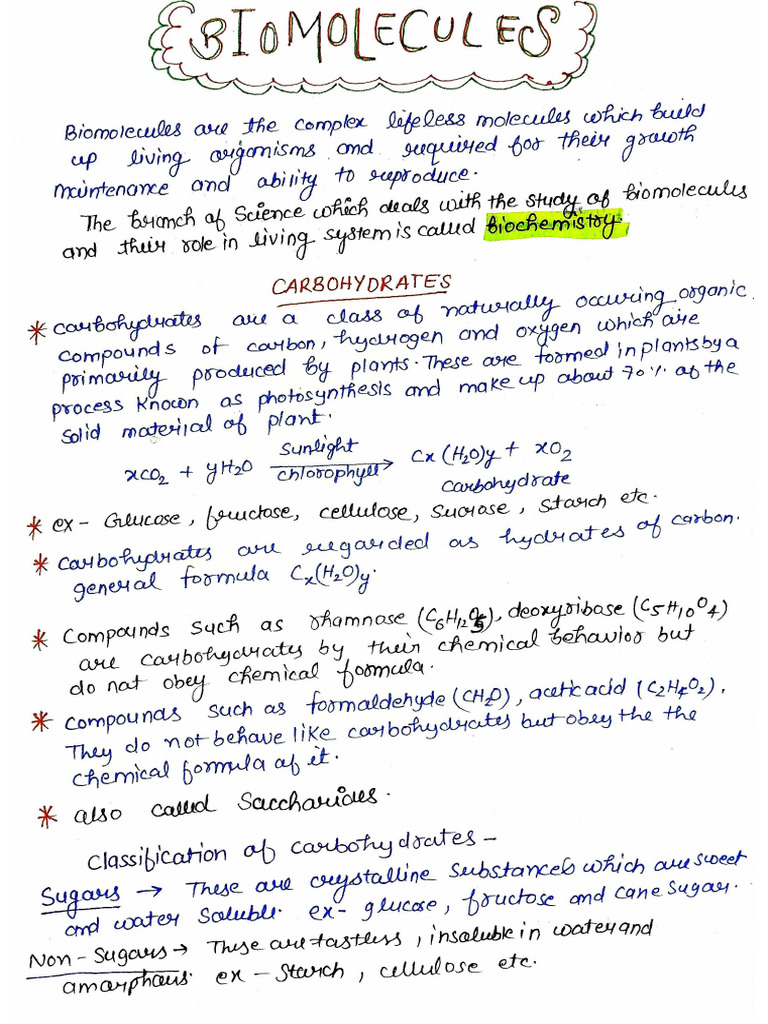 BIOMOLECULES
Biomolecules are the complex lifeless molecules which build
up living organisms and required for their growth
maintenance and ability to reproduce.
The branch of Science which deals with the study of biomolecules
and their role in living system is called biochemistry.
CARBOHYDRATES
* Carbohydrates are a class of naturally occuring organic
compounds of carbon, hydrogen and oxygen which are
primarily produced by plants. These are formed in plants by a
process known as photosynthesis and make up about 70% of the
solid material of plant.
xCO2 + yH2O Sunlight chlorophyll → Cx(H2O)y + xO2
Carbohydrate
* ex - Glucose, fructose, cellulose, sucrose, starch etc.
* Carbohydrates are regarded as hydrates of carbon.
general formula Cx(H2O)y.
* Compounds such as rhamnase (C6H12O5), deoxyribase (C5H10O4)
are carbohydrates by their chemical behavior but
do not obey chemical formula.
* Compounds such as formaldehyde (CH2O), acetic acid (C2H4O2),
They do not behave like carbohydrates but obey the the
chemical formula of it.
* also called Saccharides.
Classification of carbohydrates -
Sugars → These are crystalline substances which are sweet
and water soluble. ex- glucose, fructose and cane sugar.
Non-Sugars → These are tastless, insoluble in water and
amorphous. ex - Starch, cellulose etc.